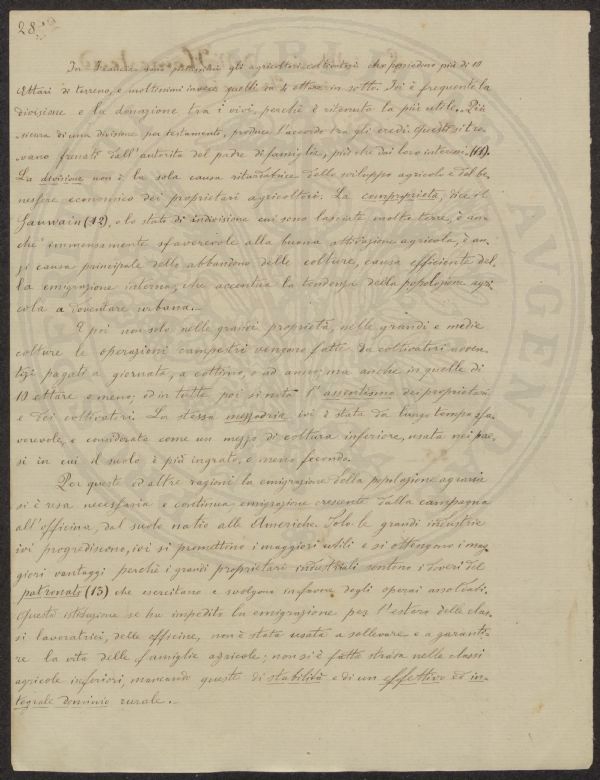 28.
In Francia sono pochissimi gli agricoltori coltivatori che possiedono più di 10
Ettari di terreno, e moltissimi invece quelli da 4 ettare in sotto. Ivi è frequente la
divisione e la donazione tra i vivi, perchè è ritenuta la più utile. Più
sicura di una divisione per testamento, produce l'accordo tra gli eredi. Questi si tro-
vano frenati dall'autorità del padre di famiglia, più che dai loro interessi (11).
La divisione non è la sola causa ritardatrice dello sviluppo agricolo e del be-
nessere economico dei proprietari agricoltori. La comproprietà, dice il
Gauwain (12), o lo stato di indivisione cui sono lasciate molte terre, è an-
che immensamente sfavorevole alla buona attivazione agricola, è an-
zi causa principale dello abbandono delle colture, causa efficiente del-
la emigrazione interna, che accentua la tendenza della popolazione agri-
cola a doventare urbana.
E poi non solo nelle grandi proprietà, nelle grandi e medie
colture le operazioni campestri vengono fatte da coltivatori avven-
tizi pagati a giornata, a cottimo, o ad anno; ma anche in quelle di
10 ettare o meno; ed in tutte poi si nota l'assentismo dei proprietari
e dei coltivatori. La stessa mezzadria ivi è stata da lungo tempo sfa-
vorevole, e considerata come un mezzo di coltura inferiore, usata nei pae-
si in cui il suolo è più ingrato, e meno fecondo.
Per queste ed altre ragioni la emigrazione della popolazione agraria
si è resa necessaria e continua emigrazione crescente dalla campagna
all'officina, dal suolo natio alle Americhe. Solo le grandi industrie
ivi progrediscono, ivi si promettono i maggiori utili e si ottengono i mag-
giori vantaggi perchè i grandi proprietari industriali sentono i doveri del
patronato (13) che esercitano e svolgono in favore degli operai assoldati.
Questa istituzione se ha impedito la emigrazione per l'estero delle clas-
si lavoratrici, delle officine, non è stata usata a sollevare e a garanti-
re la vita delle famiglie agricole; non si è fatta strada nelle classi
agricole inferiori, mancando queste di stabilità e di un effettivo ed in-
tegrale dominio rurale.